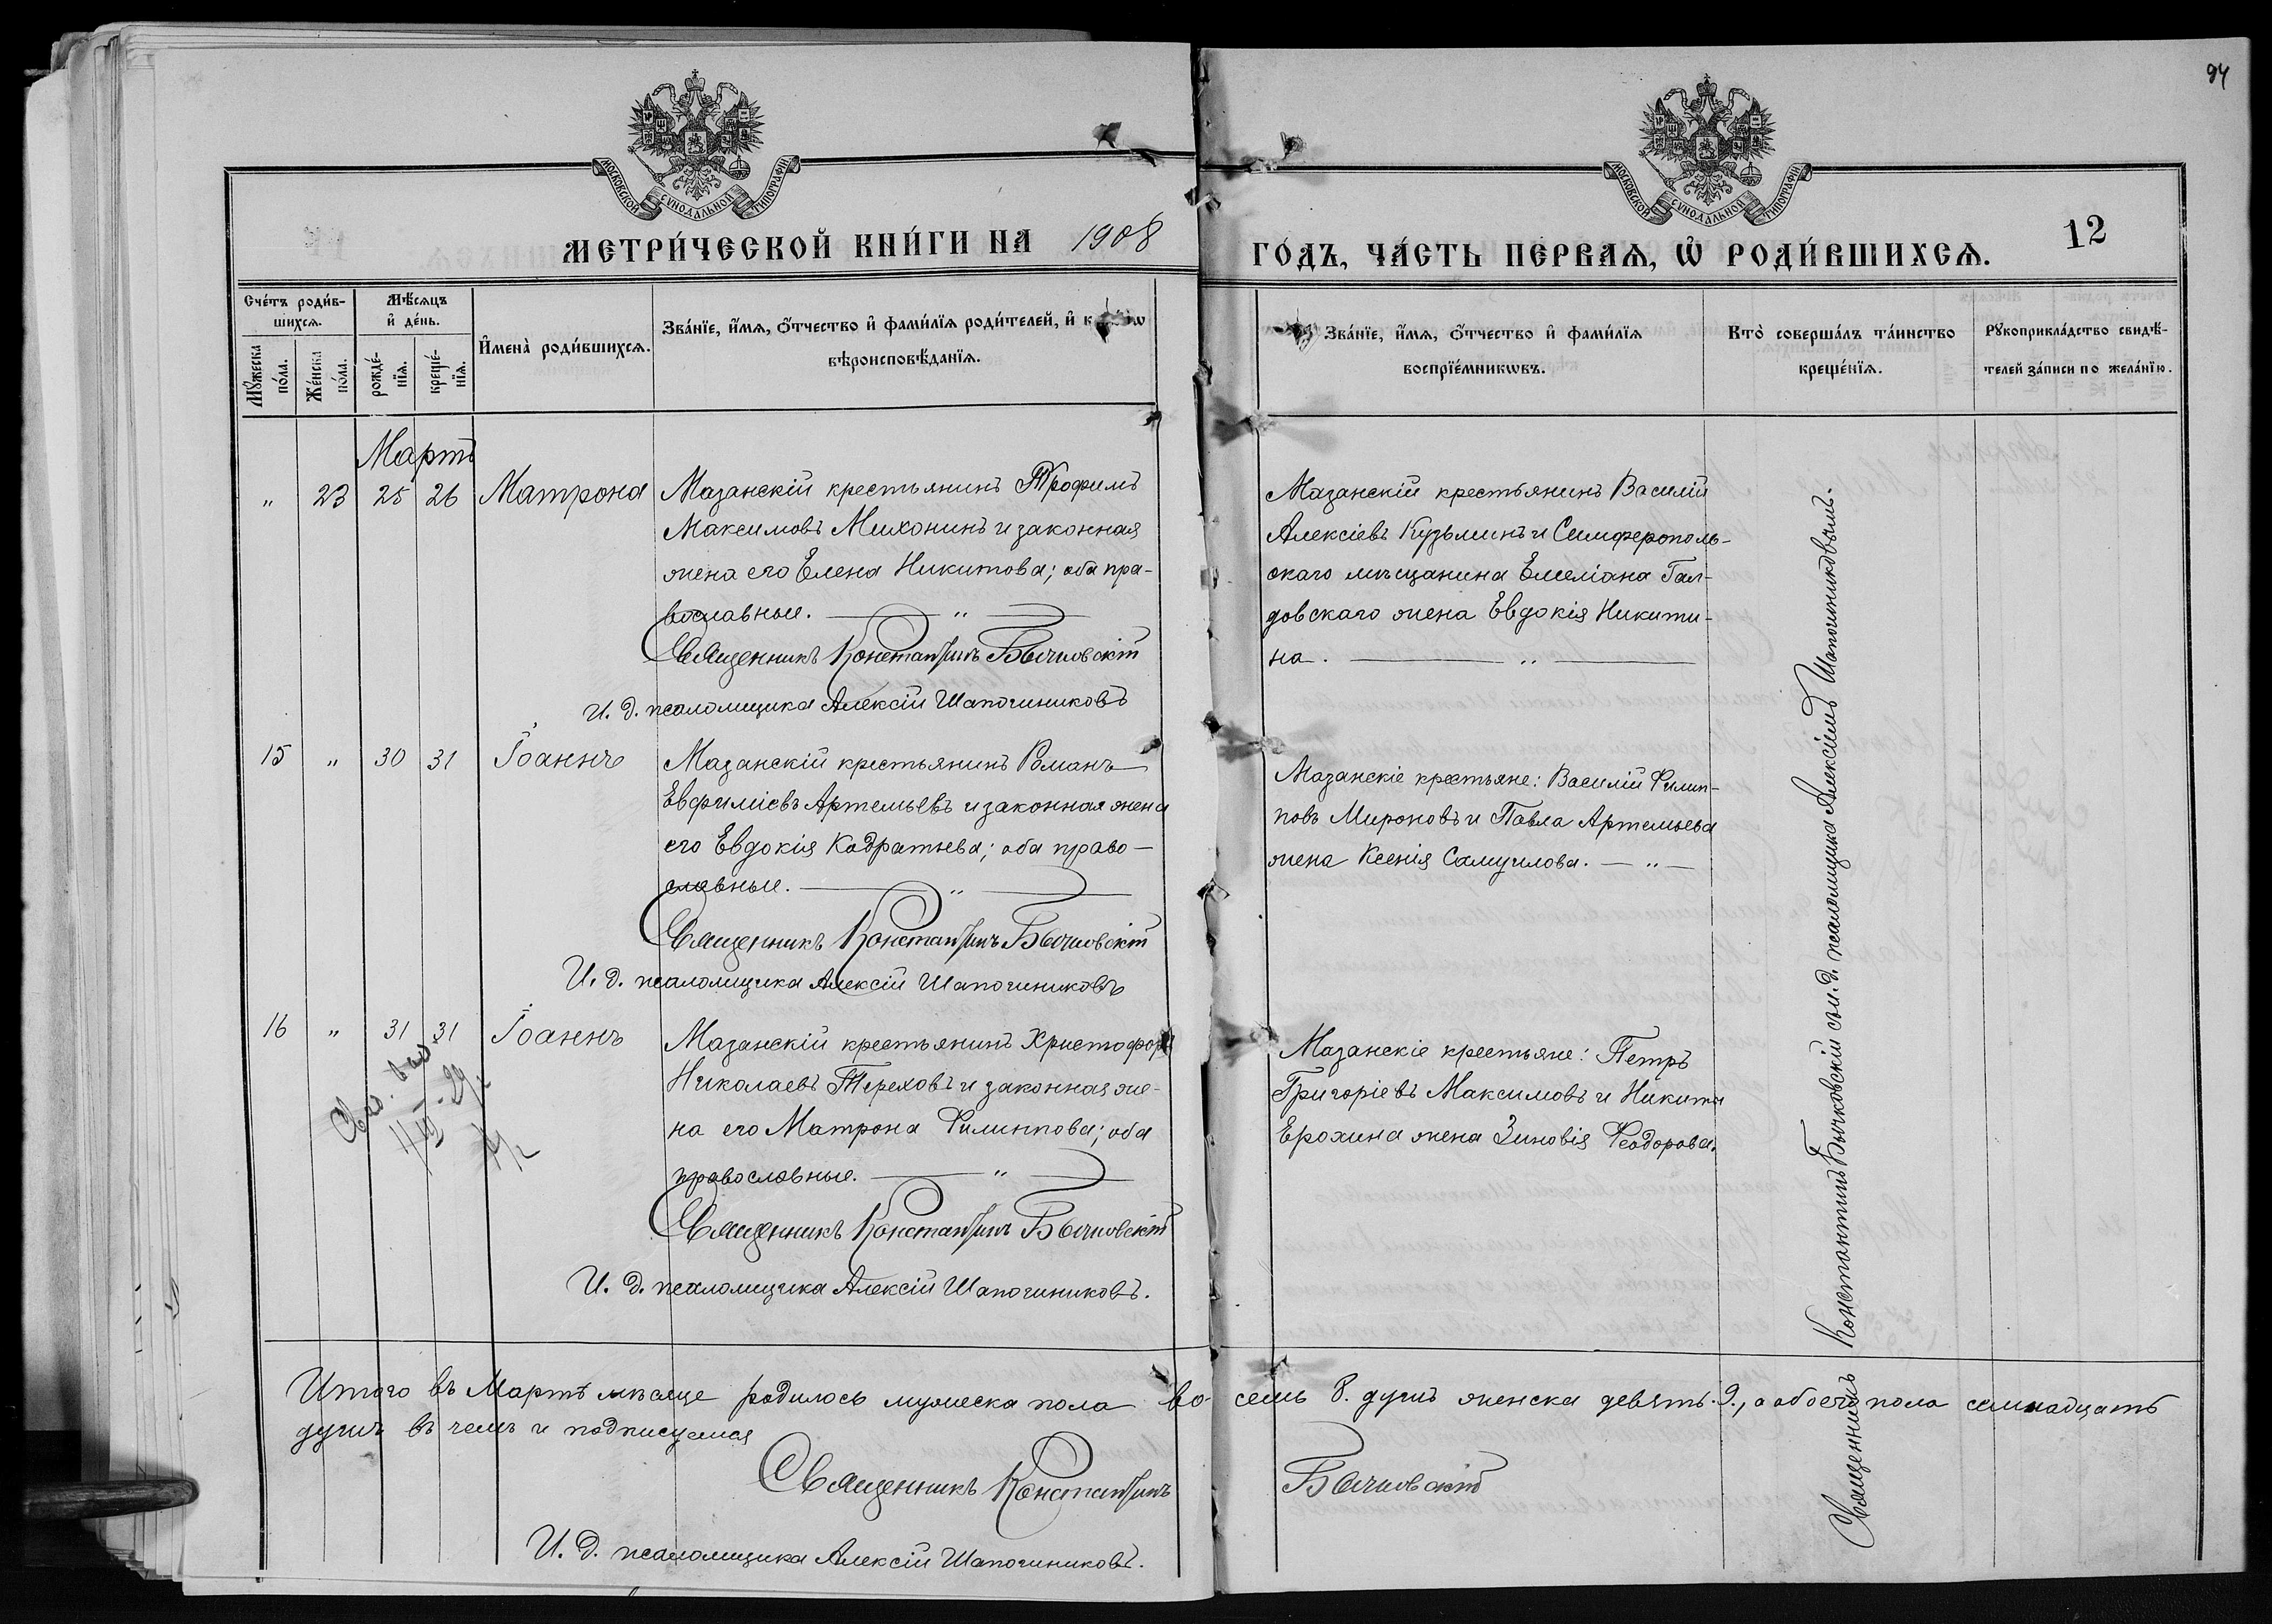 94
МОСКОВСКОЙ СѴНОДАЛЬНОЙ ТИПОГРАФІИ
МОСКОВСКОЙ СѴНОДАЛЬНОЙ ТИПОГРАФІИ
МЕТРИ́ЧЕСКОЙ КНИ́ГИ НА 1908
ГО́ДЪ, ЧА́СТЬ ПЕ́РВАѦ, Ѽ РОДИ́ВШИХСѦ.
12
Сче́тъ роди́в-
шихсѧ.
Мꙋ́жеска
по́ла.
Же́нска
по́ла.
Мѣ́сѧцъ
и҆ де́нь.
рожде́-
нїѧ.
креще́-
нїѧ.
И҆мена̀ роди́вшихсѧ.
Зва́нїе, и҆́мѧ, ѻ҆́тчество и҆ фами́лїѧ роди́телей, и҆
вѣроисповѣ́данїѧ.
Зва́нїе, и҆́мѧ, ѻ҆́тчество и҆ фами́лїѧ
воспрїе́мникѡвъ.
Кто̀ соверша́лъ та́инство
креще́нїѧ.
Рꙋкоприкла́дство свидѣ́-
телей за́писи по жела́нїю.
Мартъ
„ 23 25 26 Матрона
Мазанскій крестьянинъ Трофимъ
Максимовъ Михонинъ и законная
жена его Елена Никитова; оба пра-
вославные. — „ —
Священникъ Константинъ Бычковскій
И. д. псаломщика Алексій Шапочниковъ
Мазанскій крестьянинъ Василій
Алексіевъ Кузьминъ и Симферополь-
скаго мѣщанина Емеліана Гал-
довскаго жена Евдокія Никити-
на. — „ —
15 „ 30 31 Іоаннъ
Мазанскій крестьянинъ Романъ
Евфиміевъ Артемьевъ и законная жена
его Евдокія Кодратьева; оба право-
славные. — „ —
Священникъ Константинъ Бычковскій
И. д. псаломщика Алексій Шапочниковъ
Мазанскіе крестьяне: Василій Филип-
повъ Мироновъ и Павла Артемьева
жена Ксенія Самуилова. — „ —
16 „ 31 31 Іоаннъ
Мазанскій крестьянинъ Христофоръ
Николаевъ Тереховъ и законная же-
на его Матрона Филиппова; оба
православные. — „ —
Священникъ Константинъ Бычковскій
И. д. псаломщика Алексій Шапочниковъ.
Мазанскіе крестьяне: Петръ
Григоріевъ Максимовъ и Никиты
Ерохина жена Зиновія Ѳеодорова.
Священникъ Константинъ Бычковскій съ и. д. псаломщика Алексіемъ Шапочниковымъ.
Итого въ Мартѣ мѣсяце родилось мужеска пола во-семь 8. душъ женска девять. 9., а обоего пола семнадцать
душъ въ чемъ и подписуемся
Священникъ Константинъ Бычковскій
И. д. псаломщика Алексій Шапочниковъ.